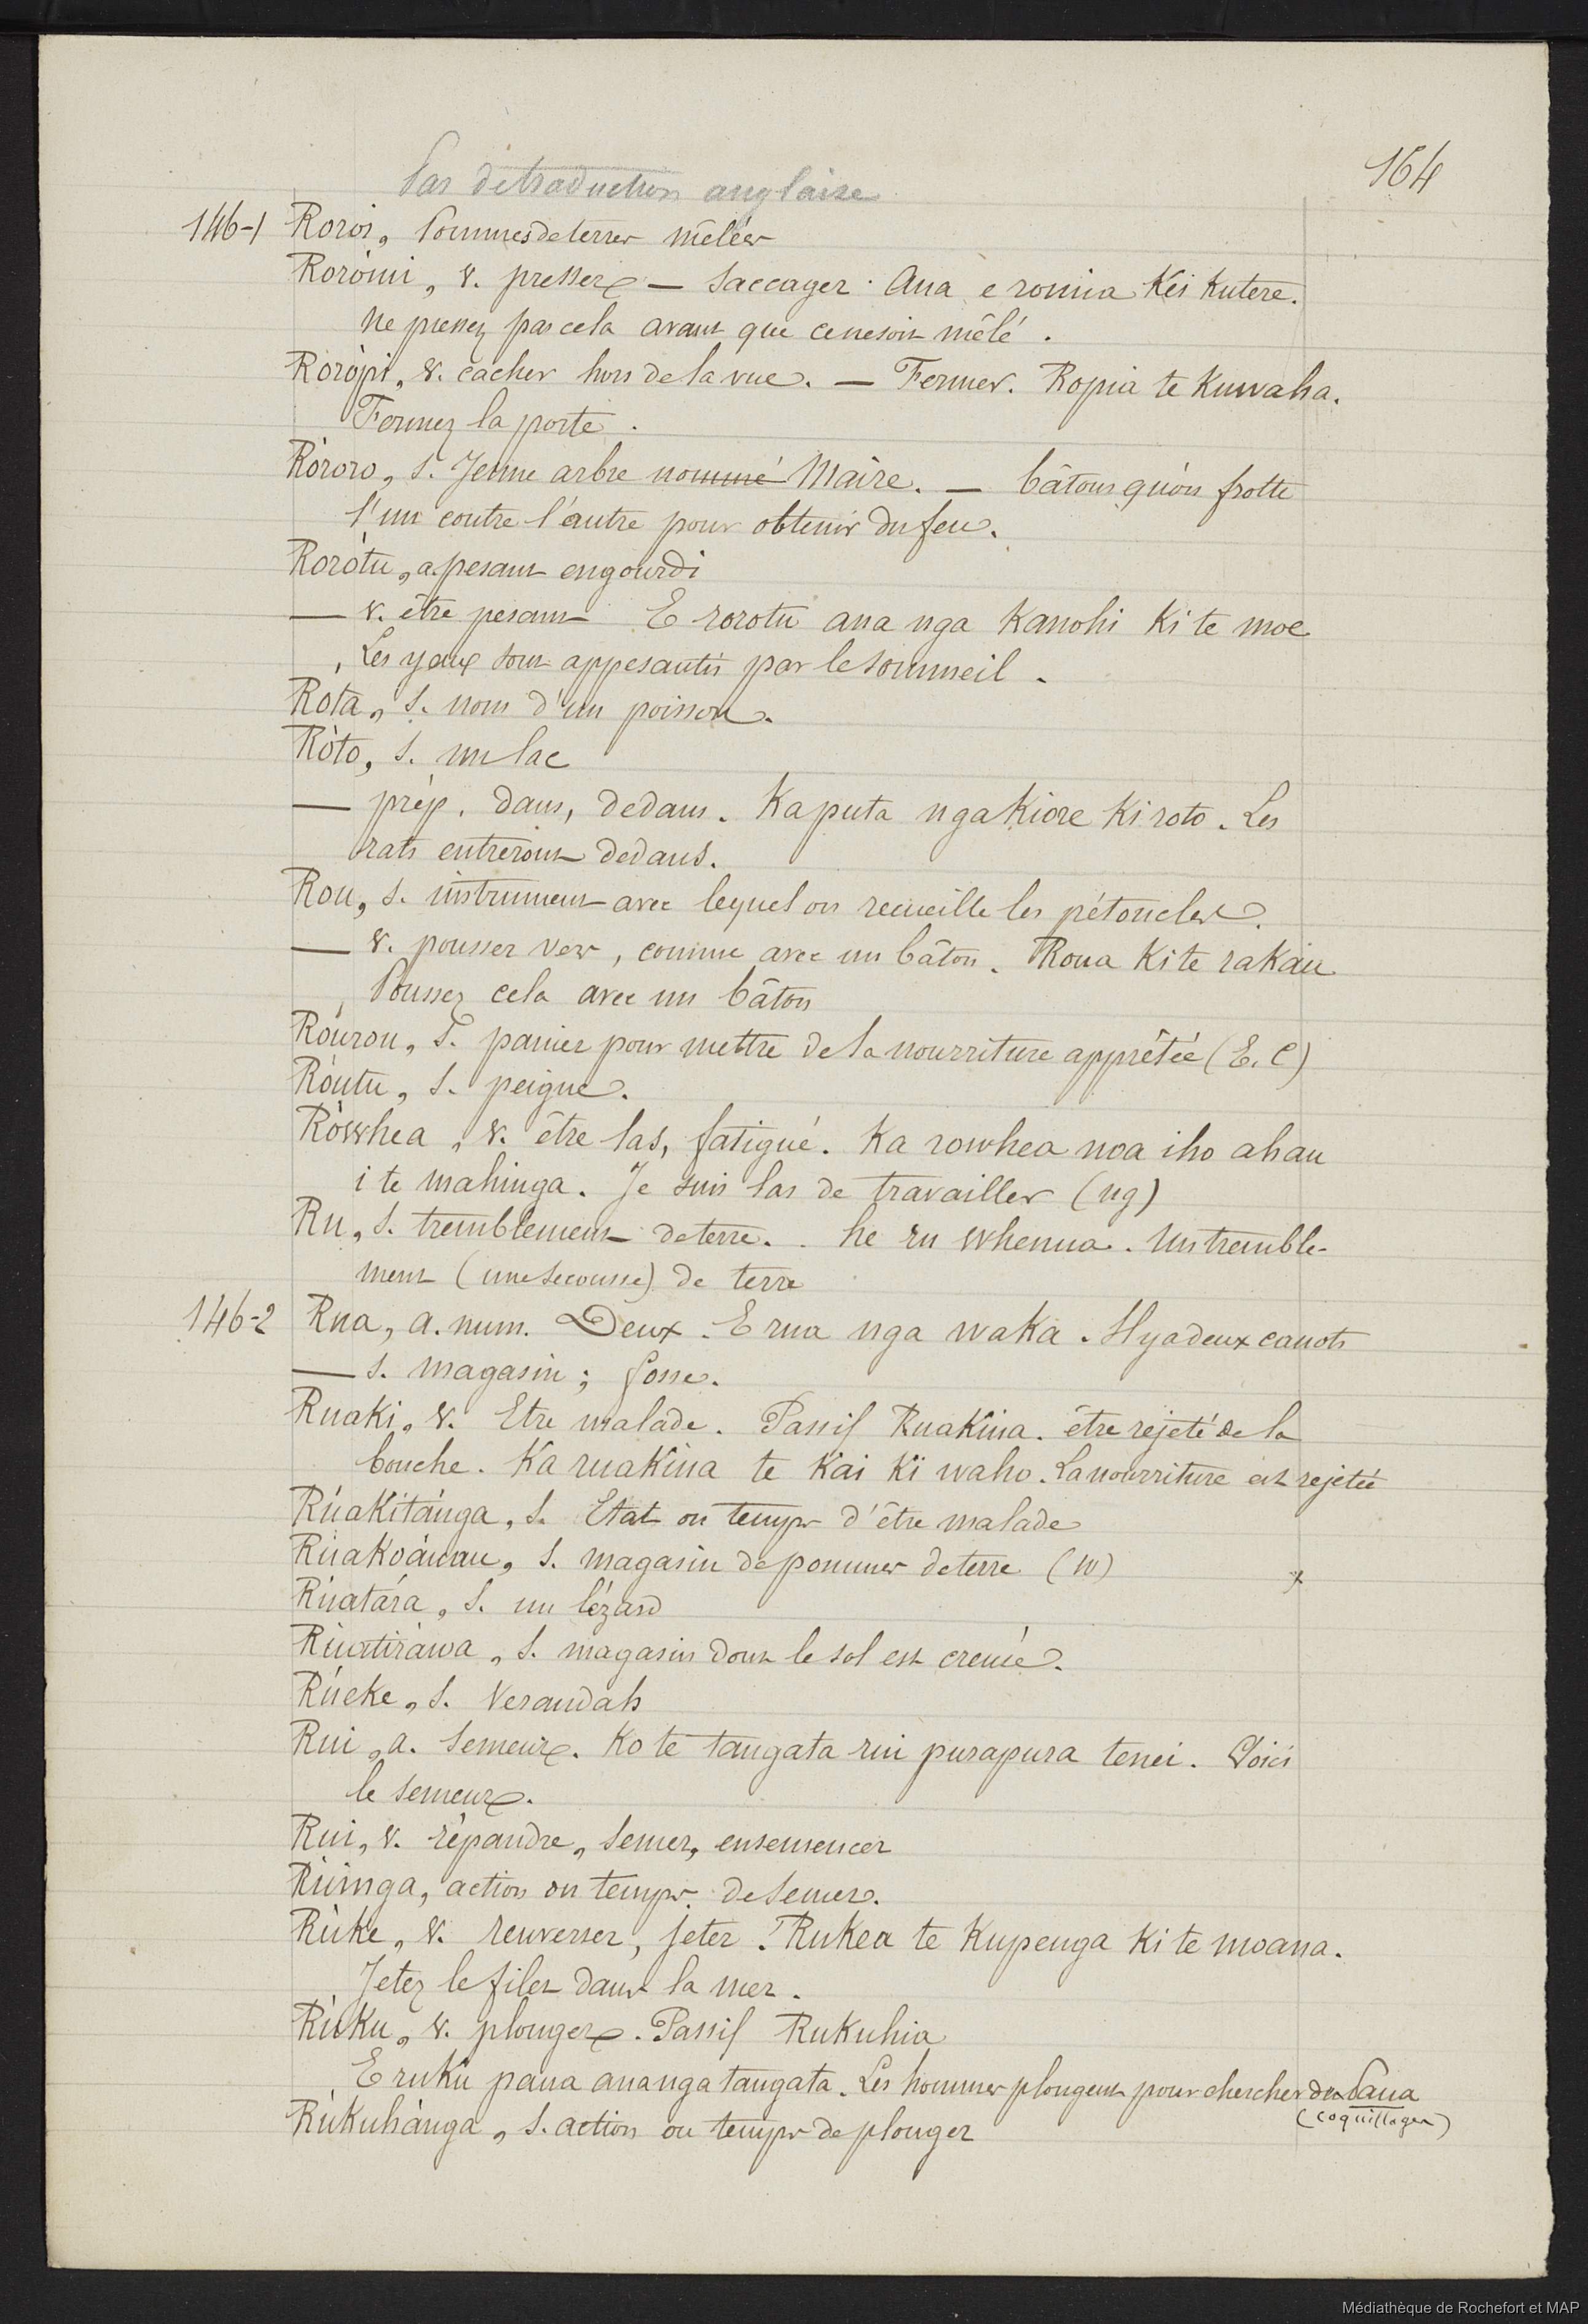 164
Pas de traduction anglaise
146-1 Roroi, Pommes de terres mêlées
Ròròmi, v. presser — Saccager. Aua e romia Kei Kutere.
ne pressez pas cela avant que ce ne soit mêlé.
Ròròpi, v. cacher hors de la vue. — Fermer. Ropia te Kuwaha.
Fermez la porte.
Ròroro, s. Jeune arbre nommé Maire. — bâtons qu'on frotte
l'un contre l'autre pour obtenir du feu.
Roròtu, a. pesant engourdi
— v. être pesant E rorotu ana nga Kanohi Ki te moe
Les yeux sont appesantis par le sommeil.
Rota, s. nom d'un poisson.
Ròto, s. un lac
— prép. dans, dedans. Ka puta nga Kiore Ki roto. Les
rats entreront dedans.
Rou, s. instrument avec lequel on recueille les pétoncles.
— v. pousser vers, comme avec un bâton. Roua Ki te rakáu
Poussez cela avec un bâton
Róurou, s. panier pour mettre de la nourriture apprêtée (E. C)
Róutu, s. peigne.
Ròwhea, v. être las, fatigué. Ka rowhea noa iho ahau
i te mahinga. Je suis las de travailler (ng)
Ru, s. tremblement de terre. . he ru whenua. Un tremble-
ment (une secousse) de terre
146-2 Rua, a. num. Deux. E rua nga waka. Il y a deux canots
— s. magasin ; fosse.
Ruaki, v. Etre malade. Passif Ruakina. être rejeté de la
bouche. Ka ruakina te Kai Ki waho. La nourriture est rejetée
Rúakitánga, s. Etat ou temps d'être malade
Rúakoáuau, s. magasin de pommes de terre (W) x
Rúatára, s. un lézard
Rúatirawa, s. magasin dont le sol est creusé.
Rúeke, s. Verandah
Rui, a. Semeur. Ko te tangata rui purapura tenei. Voici
le semeur.
Rui, v. répandre, semer, ensemencer
Rúinga, action ou temps de semer.
Rúke, v. renverser, jeter. Rukea te Kupenga Ki te moana.
Jetez le filet dans la mer.
Rùku, v. plonger. Passif Rukuhia
E ruku paua ana nga tangata. Les hommes plongent pour chercher des Paua
(coquillages)
Rùkuhànga, s. action ou temps de plonger
Médiathèque de Rochefort et MAP